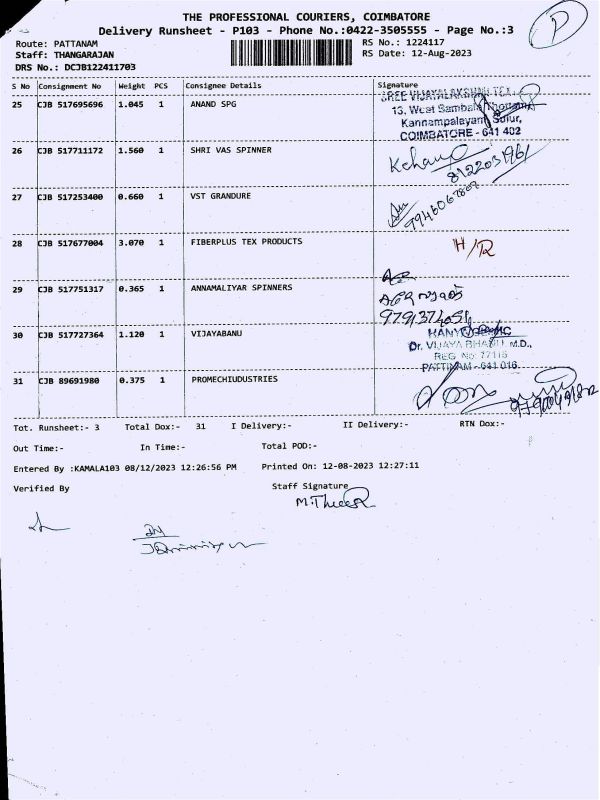 THE PROFESSIONAL COURIERS, COIMBATORE
Delivery Runsheet - P103 - Phone No.:0422-3505555 - Page No.:3
P
Route: PATTANAM
RS No.: 1224117
Staff: THANGARAJAN
RS Date: 12-Aug-2023
DRS No.: DCJB122411703
S No Consignment No Weight PCS Consignee Details Signature
25 CJB 517695696 1.045 1 ANAND SPG
SREE VIJAYALAKSHMI TEX
13, West Sambala Thottam,
Kannampalayam, Sulur,
COIMBATORE - 641 402
26 CJB 517711172 1.560 1 SHRI VAS SPINNER
8122031961
27 CJB 517253400 0.660 1 VST GRANDURE
28 CJB 517677004 3.070 1 FIBERPLUS TEX PRODUCTS H/R
29 CJB 517751317 0.365 1 ANNAMALIYAR SPINNERS
30 CJB 517727364 1.120 1 VIJAYABANU
Dr. VIJAYA BHANU M.D.,
REG No: 77116
PATTINAM - 641 016
31 CJB 89691980 0.375 1 PROMECHIUDUSTRIES
Tot. Runsheet:- 3 Total Dox:- 31 I Delivery:- II Delivery:- RTN Dox:-
Out Time:- In Time:- Total POD:-
Entered By :KAMALA103 08/12/2023 12:26:56 PM Printed On: 12-08-2023 12:27:11
Verified By Staff Signature